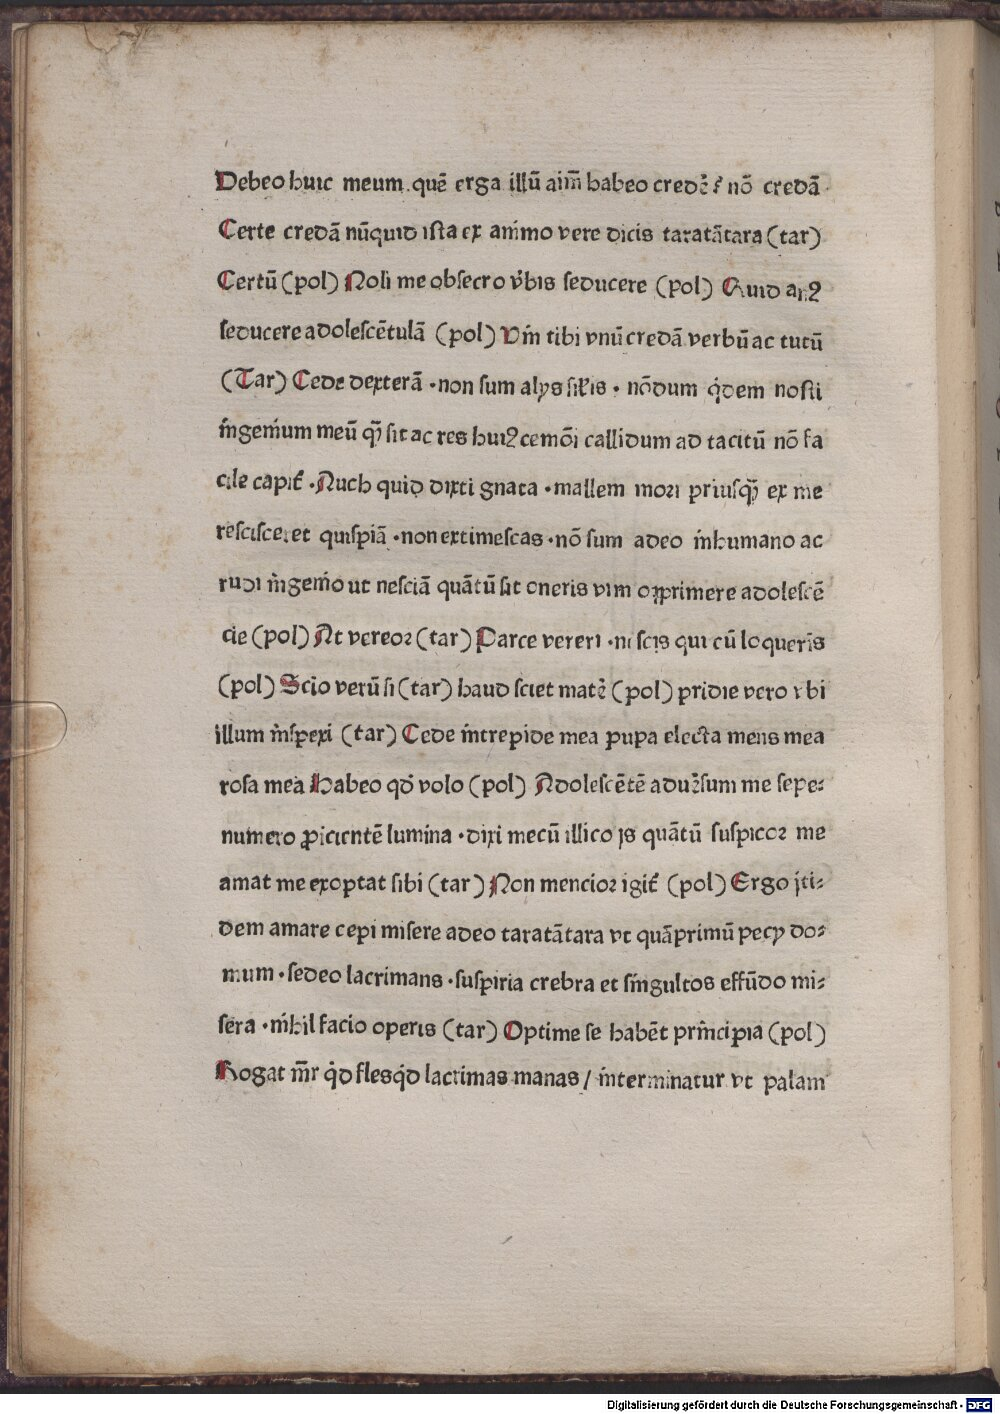 Debeo huic meum quē erga illū aim̄ habeo credeꝛ̄ nō credā
Certe credā nūquid ista ex animo vere dicis taratātara (tar)
Certū (pol) Noli me obsecro v̓bis seducere (pol) Quid
seducere adolescētulā (pol) Vm̄ tibi vnū credā verbū ac tutū
(Tar) Cede dexterā · non sum alijs sil̓is · nōdum q̓dem nosti
ingenium meū qꝫ̄ sit ac res hui₂cemōi callidum ad tacitū nō fa
cile capit̓ · Auch quid dixti gnata · mallem mori priusqꝫ̄ ex me
rescisceret quispiā · non extimescas · nō sum adeo inhumano ac
rudi ingenio ut nesciā quātū sit oneris vim opprimere adolescē
cie (pol) At vereor (tar) Parce vereri · nescis qui cū loqueris
(pol) Scio verū si (tar) haud sciet mateꝛ̄ (pol) pridie vero vbi
illum inspexi (tar) Cede intrepide mea pupa electa mens mea
rosa mea Habeo qd̓ volo (pol) Adolescētē adu̓sum me sepe⸗
numero ꝓicientē lumina · dixi mecū illico is quātū suspicor me
amat me exoptat sibi (tar) Non mencior igit̓ (pol) Ergo iti⸗
dem amare cepi misere adeo taratātara vt quāprimū pecij do⸗
mum · sedeo lacrimans · suspiria crebra et singultos effūdo mi⸗
sera · nihil facio operis (tar) Optime se habēt principia (pol)
Rogat mr̄ q̓d fles q̓d lacrimas manas / interminatur vt palam
Digitalisierung gefördert durch die Deutsche Forschungsgemeinschaft - DFG